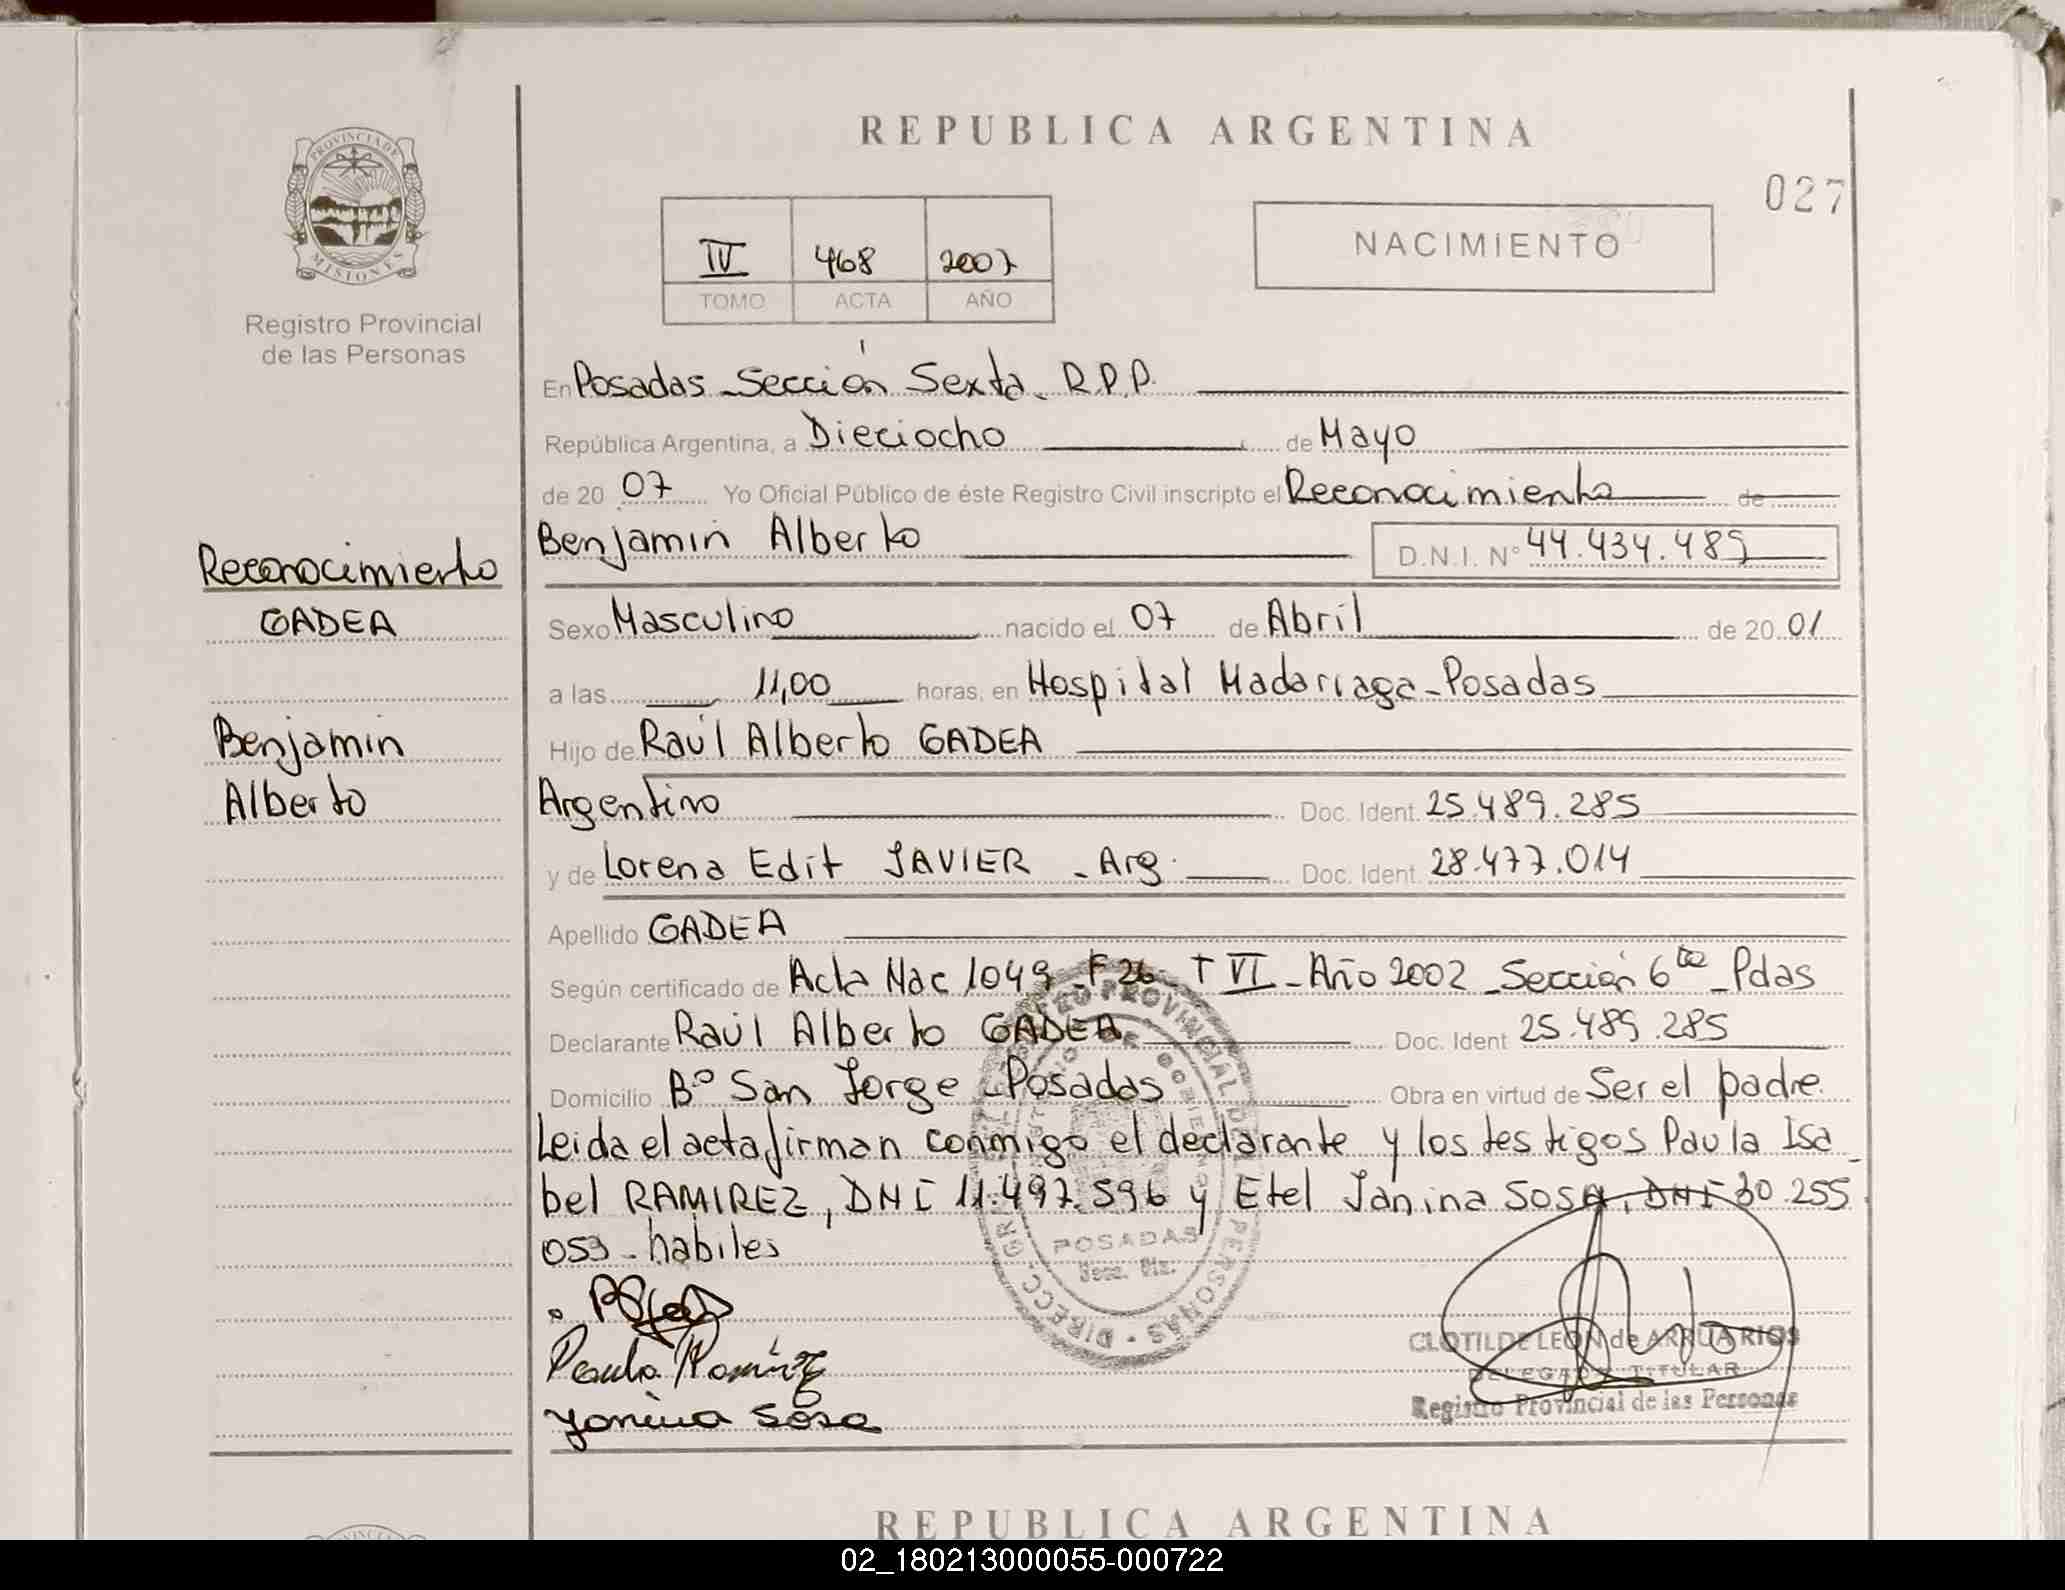 REPUBLICA ARGENTINA
027
PROVINCIA DE
MISIONES
Registro Provincial
de las Personas
IV 468 2007
TOMO ACTA AÑO
NACIMIENTO
En Posadas - Sección Sexta - R.P.P.
República Argentina, a Dieciocho de Mayo
de 20 07 Yo Oficial Público de éste Registro Civil inscripto el Reconocimiento de
Benjamin Alberto D.N.I. N° 44.434.489
Reconocimiento
GADEA
Benjamin
Alberto
Sexo Masculino nacido el 07 de Abril de 20 01
a las 11,00 horas, en Hospital Madariaga - Posadas
Hijo de Raúl Alberto GADEA
Argentino Doc. Ident. 25.489.285
y de Lorena Edit JAVIER - Arg. Doc. Ident. 28.477.014
Apellido GADEA
Según certificado de Acta Nac 1049 - F 26 - T VI - Año 2002 - Sección 6ta - Pdas
Declarante Raúl Alberto GADEA Doc. Ident 25.489.285
Domicilio B° San Jorge - Posadas Obra en virtud de Ser el padre.
Leida el acta firman conmigo el declarante y los testigos Paula Isa_
bel RAMIREZ, DNI 11.497.596 y Etel Janina SOSA, DNI 30.255.
053 - habiles
Paula Ramirez
Janina Sosa
POSADAS
CLOTILDE LEON de ARRUA RIOS
DELEGADA TITULAR
Registro Provincial de las Personas
REPUBLICA ARGENTINA
02_180213000055-000722